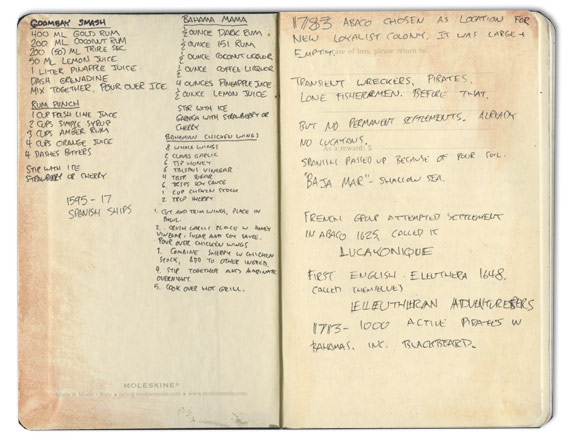 GOOMBAY SMASH
400 ML GOLD RUM
200 ML COCONUT RUM
200 (50) ML TRIPLE SEC
50 ML LEMON JUICE
1 LITER PINAPPLE JUICE
DASH GRENADINE
MIX TOGETHER, POUR OVER ICE
RUM PUNCH
1 CUP FRESH LIME JUICE
2 CUPS SIMPLE SYRUP
3 CUPS AMBER RUM
4 CUPS ORANGE JUICE
4 DASHES BITTERS
STIR WITH ICE
STRAWBERRY OR CHERRY
1595 - 17
SPANISH SHIPS
BAHAMA MAMA
½ OUNCE DARK RUM
½ OUNCE 151 RUM
½ OUNCE COCONUT LIQUOR
½ OUNCE COFFEE LIQUOR
4 OUNCES PINEAPPLE JUICE
½ OUNCE LEMON JUICE
STIR WITH ICE
GARNISH WITH STRAWBERRY OR
CHERRY
BAHAMIAN CHICKEN WINGS
8 WHOLE WINGS
2 CLOVES GARLIC
HONEY
VINEGAR
SUGAR
SOY SAUCE
1 CUP CHICKEN STOCK
2 SHERRY
1. CUT AND TRIM WINGS, PLACE IN
2. CRUSH GARLIC PLACE W HONEY
VINEGAR, SUGAR AND SOY SAUCE.
POUR OVER CHICKEN WINGS
3. COMBINE SHERRY W CHICKEN
STOCK, ADD TO OTHER INGRED.
4. STIR TOGETHER AND MARINATE
OVERNIGHT.
5. COOK OVER HOT GRILL.
MOLESKINE®
1783 ABACO CHOSEN AS LOCATION FOR
NEW LOYALIST COLONY. IT WAS LARGE +
EMPTY.
In case of loss, please return to:
TRANSIENT WRECKERS, PIRATES,
LONE FISHERMEN. BEFORE THAT.
BUT NO PERMANENT SETTLEMENTS. ALREADY
NO LUCAYANS.
As a reward: $
SPANISH PASSED UP BECAUSE OF POOR SOIL.
"BAJA MAR" - SHALLOW SEA.
FRENCH GROUP ATTEMPTED SETTLEMENT
IN ABACO 1625, CALLED IT
LUCAYONIQUE
FIRST ENGLISH - ELEUTHERA 1648.
(CALLED THEMSELVES)
ELEUTHERIAN ADVENTURERS
1713 - 1000 ACTIVE PIRATES IN
BAHAMAS. INC. BLACKBEARD.